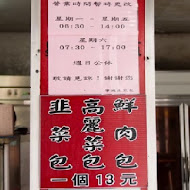 營業時間暫時更改
星期一 - 星期五
06:30 - 14:00
星期六
07:30 - 17:00
週日公休
敬請見諒！謝謝您
鮮肉包
高麗菜包
韭菜包
一個13元